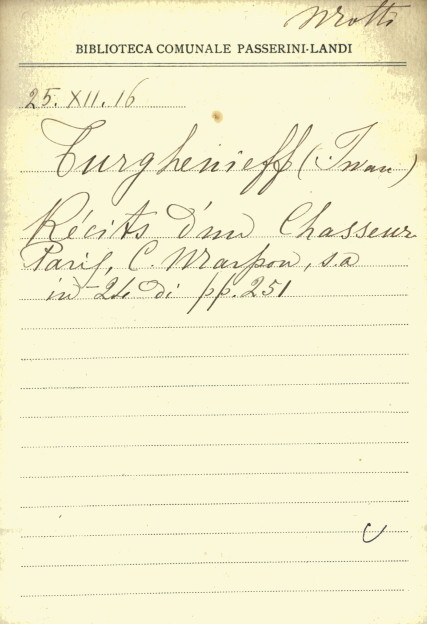 BIBLIOTECA COMUNALE PASSERINI-LANDI
25. XII. 16
Turghenieff (Iwan)
Récits d'un Chasseur
Paris, C. Marpon, s.a
in-24° di pp. 251